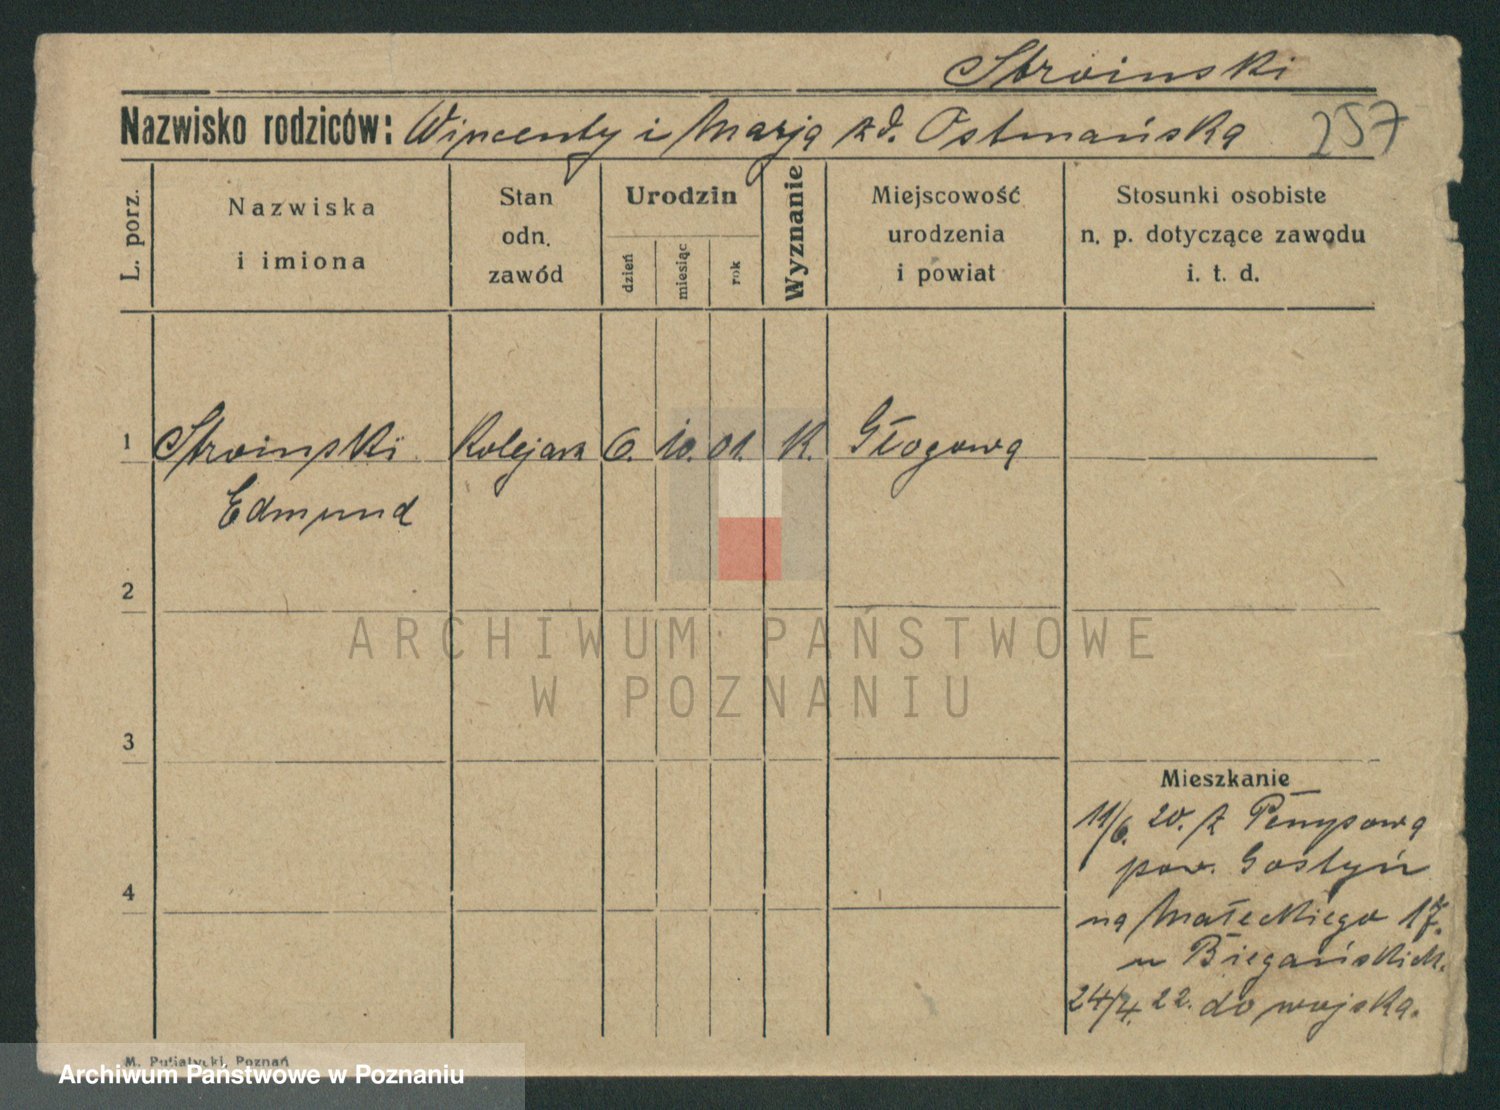 Stroinski
Nazwisko rodziców: Wincenty i Marja zd. Ostmańska 257
L. porz.
Nazwiska
i imiona
Stan
odn.
zawód
Urodzin
dzień
miesiąc
rok
Wyznanie
Miejscowość
urodzenia
i powiat
Stosunki osobiste
n. p. dotyczące zawodu
i. t. d.
1 Stroinski Kolejarz 6. 10. 01. K. Głogowa
Edmund
2
ARCHIWUM PAŃSTWOWE
W POZNANIU
3
Mieszkanie
11/6. 20. z
pow. Gostyń
4
na Małeckiego 17.
u Biegańskich.
24/4. 22. do wojska.
M. Putiatycki, Poznań
Archiwum Państwowe w Poznaniu